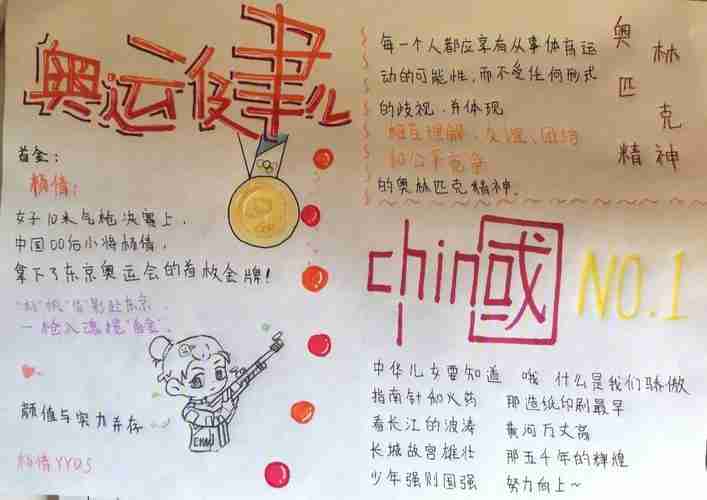 奥运健儿
首金：
杨倩：
女子10米气枪决赛上，
中国00后小将杨倩，
拿下了东京奥运会的首枚金牌！
"杨"帆"倩"影赴东京，
一枪入魂揽"首金"。
颜值与实力并存
杨倩YYDS
每一个人都应享有从事体育运
动的可能性，而不受任何形式
的歧视，并体现
相互理解、友谊、团结
和公平竞争
的奥林匹克精神。
奥林匹克精神
chin國
NO.1
中华儿女要知道 哦 什么是我们骄傲
指南针和火药 那造纸印刷最早
看长江的波涛 黄河万丈高
长城故宫雄壮 那五千年的辉煌
少年强则国强 努力向上~